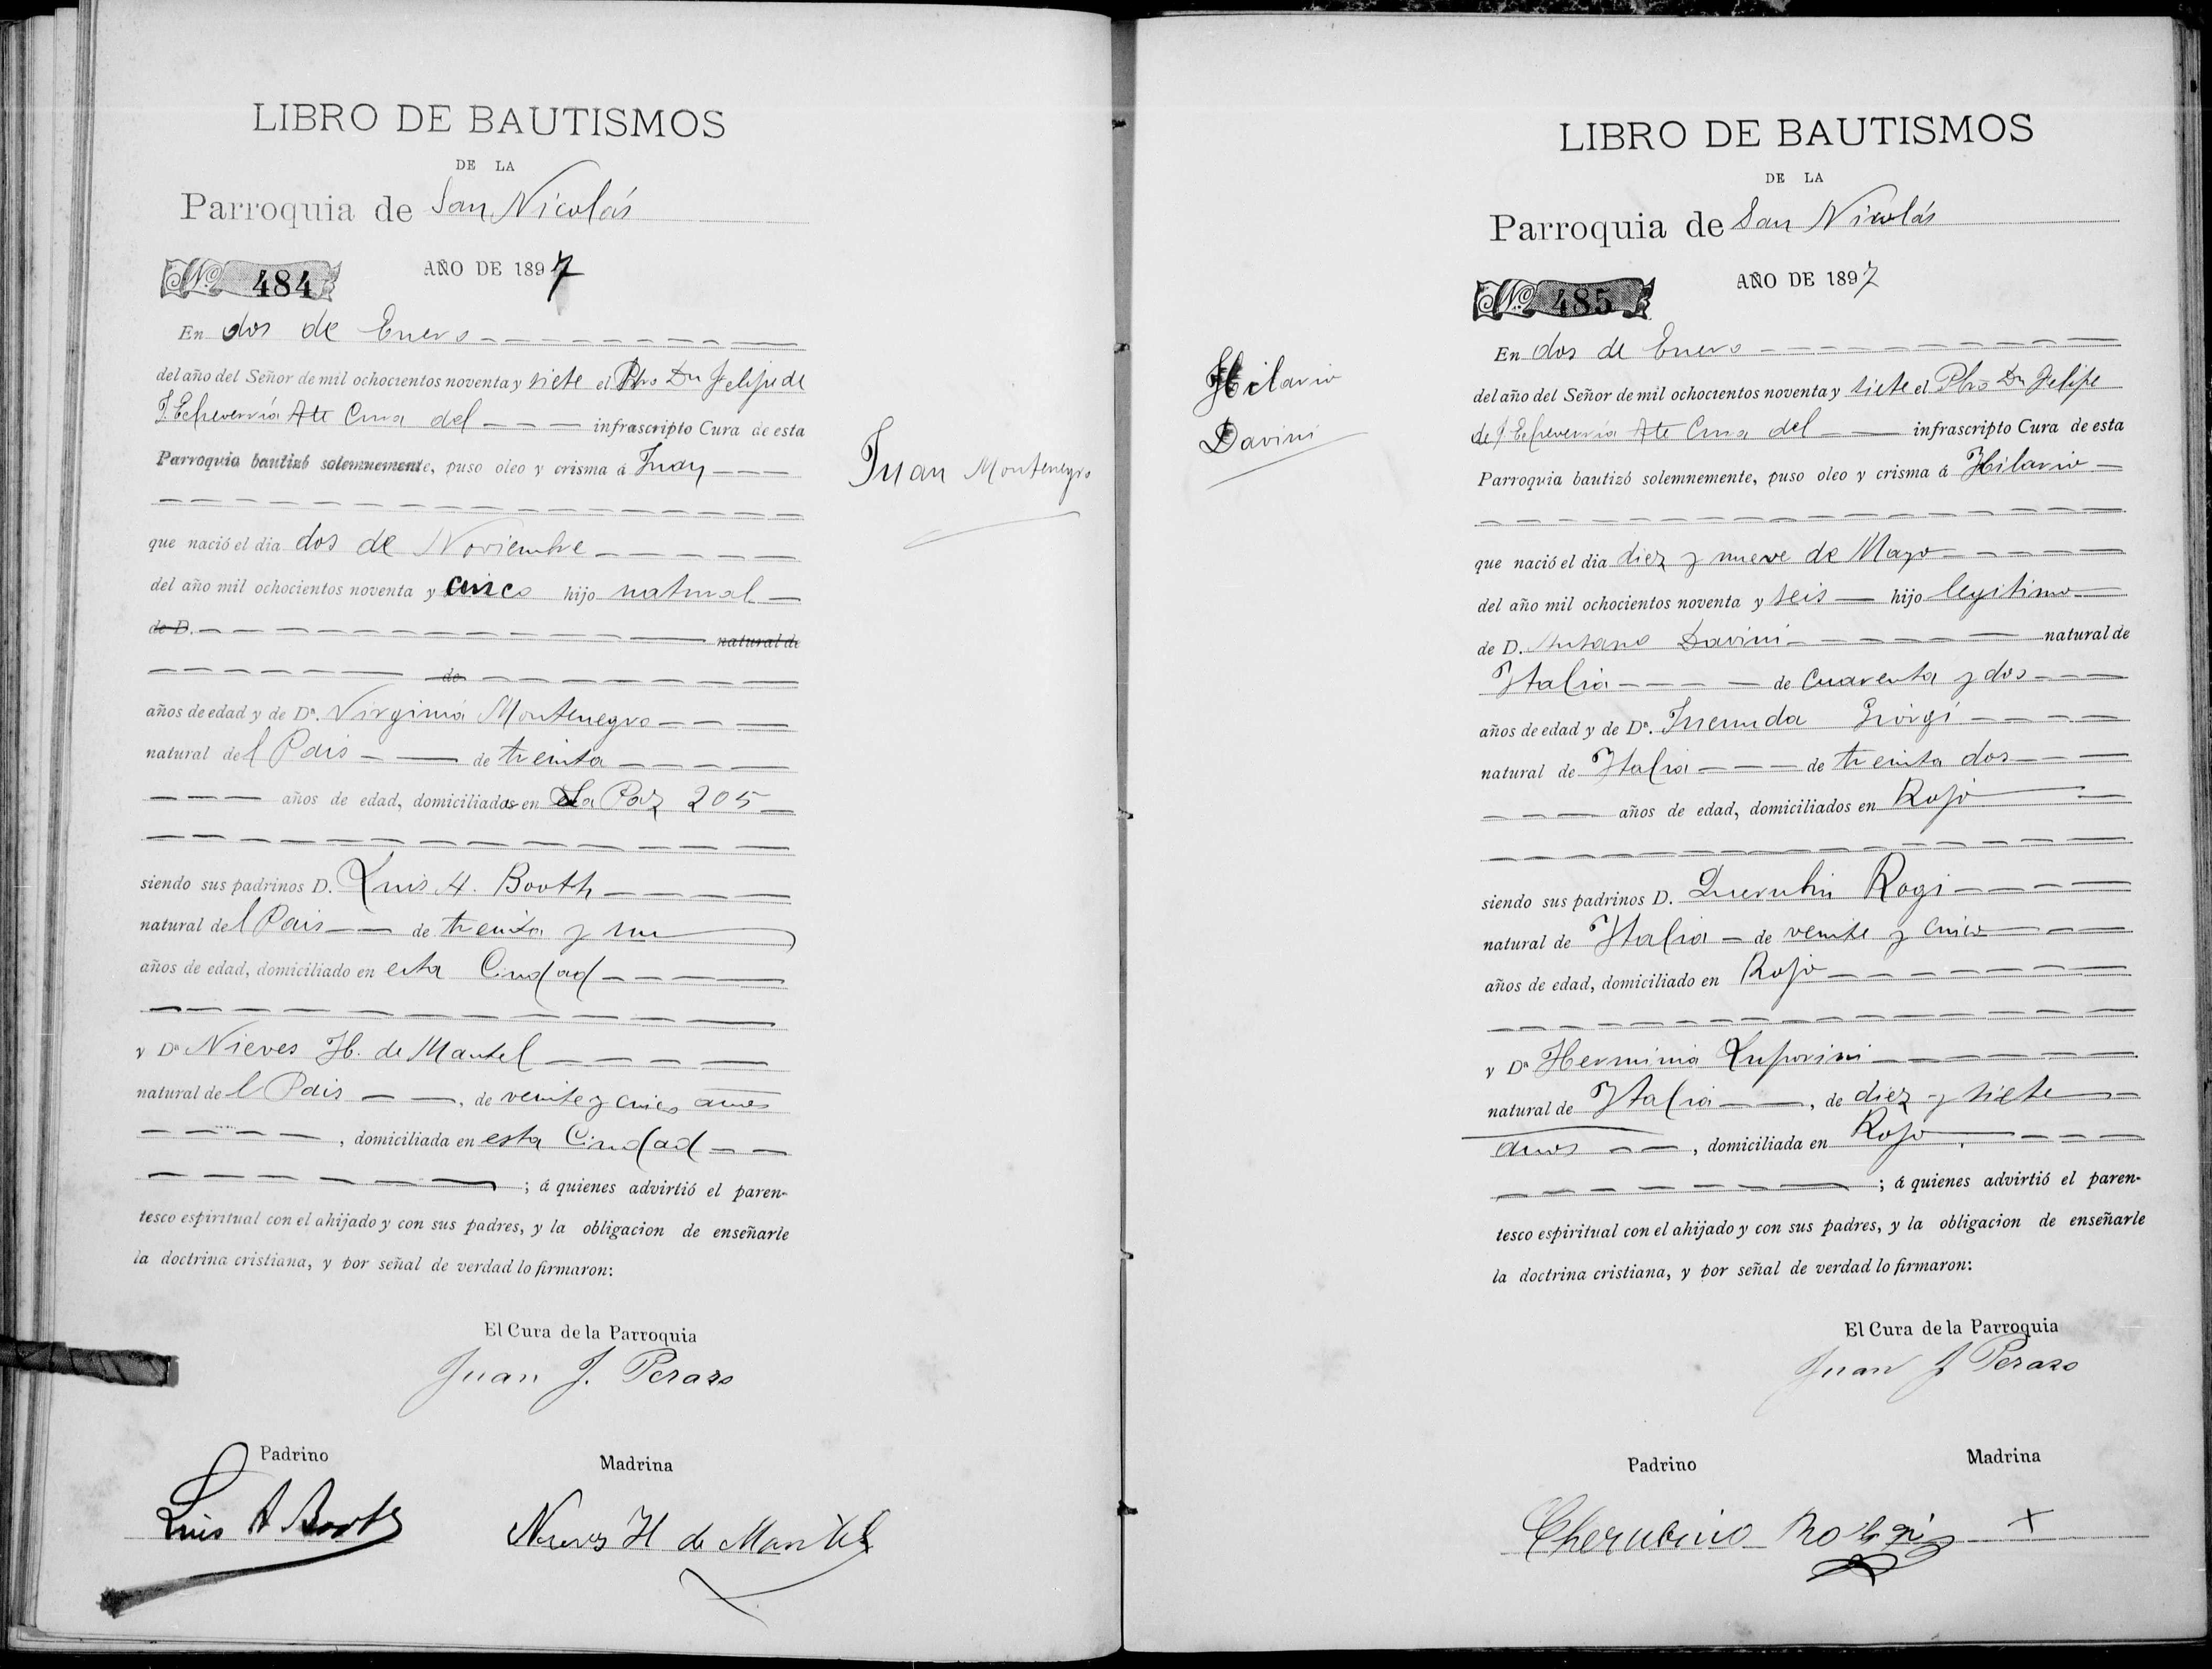 LIBRO DE BAUTISMOS
DE LA
Parroquia de San Nicolás
Nº 484
AÑO DE 1897
En dos de Enero
del año del Señor de mil ochocientos noventa y siete el Pbro Dn Felipe de
J. Echeverría Tte Cura del infrascripto Cura de esta
Parroquia bautizó solemnemente, puso oleo y crisma á Juan
que nació el dia dos de Noviembre
del año mil ochocientos noventa y cinco hijo natural
de D. natural de
de
años de edad y de Dª. Virginia Montenegro
natural del Pais de treinta
años de edad, domiciliados en La Paz 205
siendo sus padrinos D. Luis A. Booth
natural del Pais de treinta y un
años de edad, domiciliado en esta Ciudad
y Dª Nieves H. de Mantel
natural del Pais, de veinte y cinco años
, domiciliada en esta Ciudad
; á quienes advirtió el paren-
tesco espiritual con el ahijado y con sus padres, y la obligacion de enseñarle
la doctrina cristiana, y por señal de verdad lo firmaron:
El Cura de la Parroquia
Juan J. Perazo
Padrino
Madrina
Luis A Booth
Nieves H de Mantel
Juan Montenegro
Hilario
Davini
LIBRO DE BAUTISMOS
DE LA
Parroquia de San Nicolás
Nº 485
AÑO DE 1897
En dos de Enero
del año del Señor de mil ochocientos noventa y siete el Pbro Dn Felipe
de J. Echeverría Tte Cura del infrascripto Cura de esta
Parroquia bautizó solemnemente, puso oleo y crisma á Hilario
que nació el dia diez y nueve de Mayo
del año mil ochocientos noventa y seis hijo legitimo
de D. Davini natural de
Italia de cuarenta y dos
años de edad y de Dª. Giorgi
natural de Italia de treinta dos
años de edad, domiciliados en Rojo
siendo sus padrinos D. Querubin Rogi
natural de Italia de veinte y cinco
años de edad, domiciliado en Rojo
y Dª Herminia Luporini
natural de Italia, de diez y siete
años, domiciliada en Rojo
; á quienes advirtió el paren-
tesco espiritual con el ahijado y con sus padres, y la obligacion de enseñarle
la doctrina cristiana, y por señal de verdad lo firmaron:
El Cura de la Parroquia
Juan J Perazo
Padrino
Madrina
Cherubino X